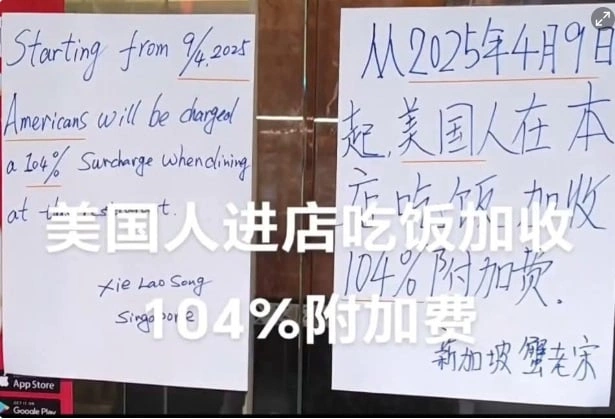 Starting from 9/4.2025
Americans will be charged
a 104% Surcharge when dining
at
Xie Lao Song
Singapore
从2025年4月9日
起,美国人在本
店吃饭加收
104%附加费.
新加坡 蟹老宋
美国人进店吃饭加收
104%附加费
App Store
GET IT ON
Google Play